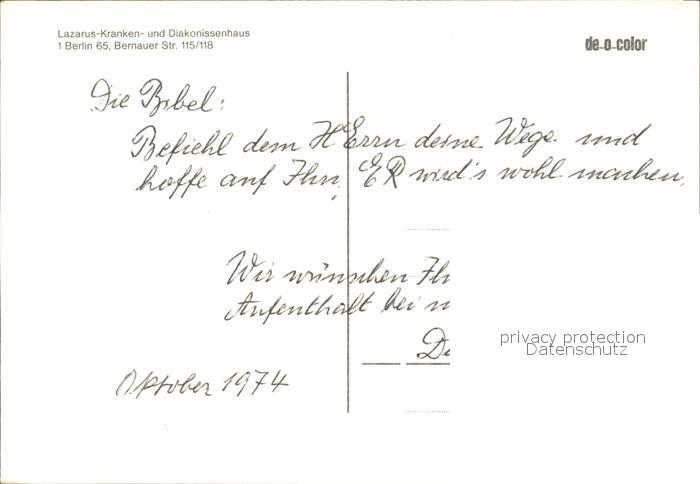 Lazarus-Kranken- und Diakonissenhaus
1 Berlin 65, Bernauer Str. 115/118
de-o-color
Die Bibel:
Befiehl dem HErrn deine Wege und
hoffe auf Ihn, ER wird's wohl machen.
Wir wünschen Ih
Aufenthalt bei
privacy protection
Datenschutz
Oktober 1974